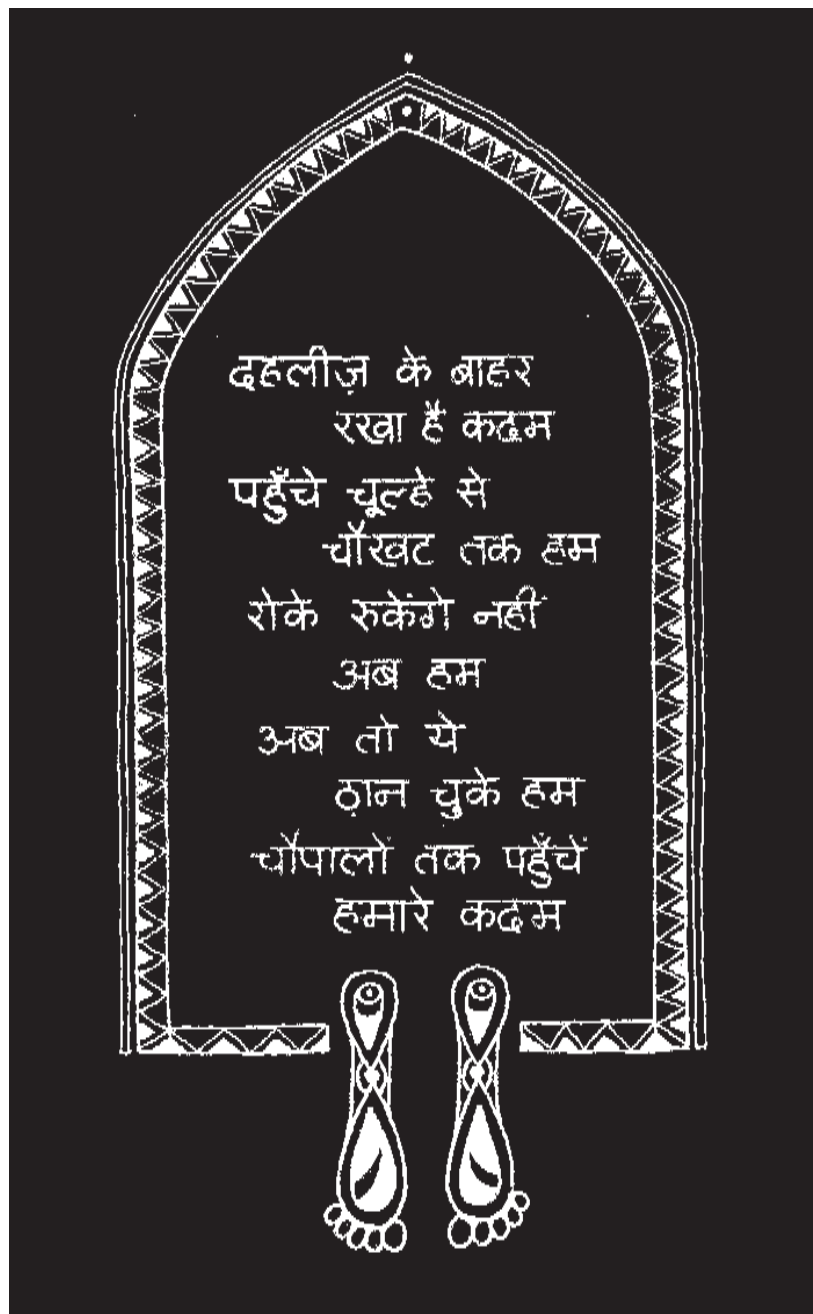 दहलीज़ के बाहर
रखा है कदम
पहुँचे चूल्हे से
चौखट तक हम
रोके रुकेंगे नहीं
अब हम
अब तो ये
ठान चुके हम
चौपालों तक पहुँचें
हमारे कदम